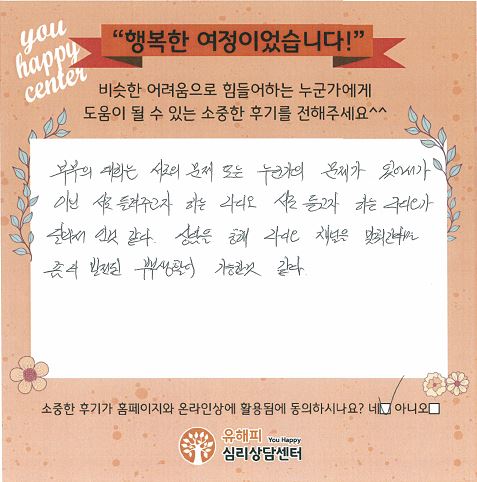 you
happy
center
“행복한 여정이었습니다!”
비슷한 어려움으로 힘들어하는 누군가에게
도움이 될 수 있는 소중한 후기를 전해주세요^^
부부의 대화는 서로의 문제 또는 누군가의 문제가 있어서가
아닌 서로 들려주고자 하는 라디오 서로 듣고자 하는 라디오가
달라서 인것 같다. 상담을 통해 라디오 채널을 맞춰간다면
좀더 발전된 부부생활이 가능한것 같다.
소중한 후기가 홈페이지와 온라인상에 활용됨에 동의하시나요? 네 아니오
유해피 You Happy
심리상담센터